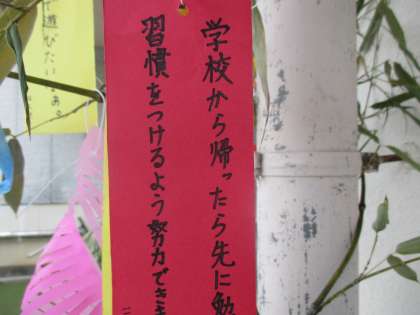 学校から帰ったら先に勉
習慣をつけるよう努力でき
遊びたいなぁ。